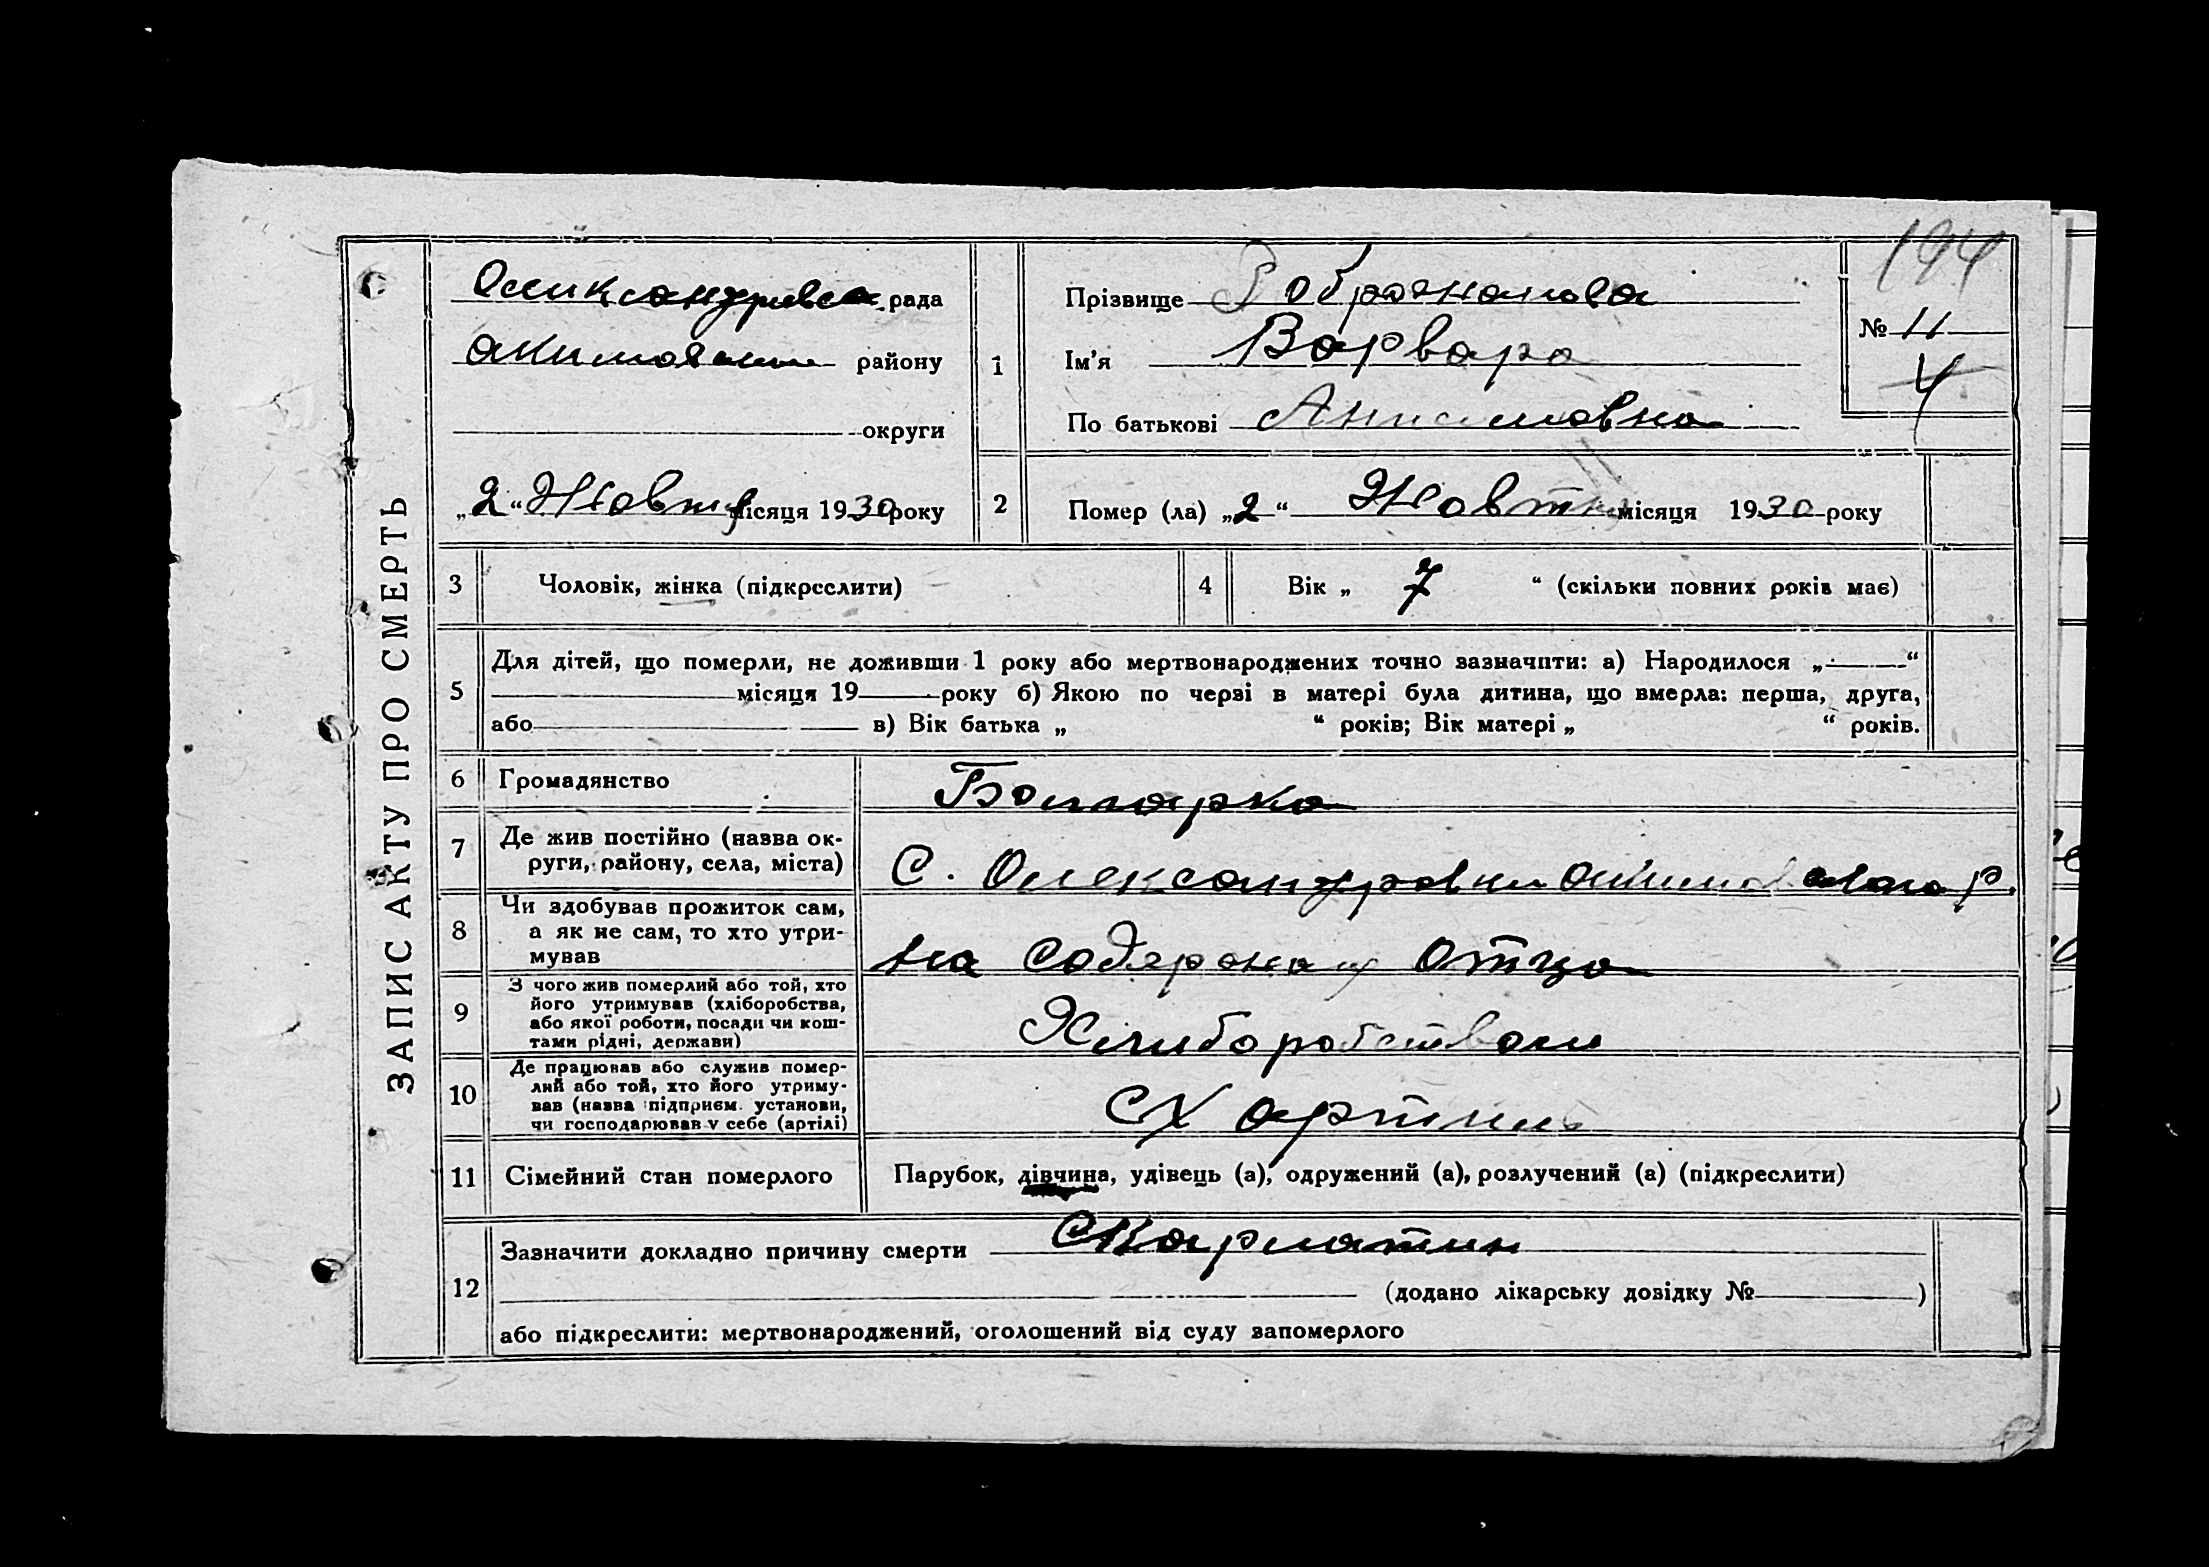 194
Оликсандривска рада
Акимовский району
округи
„2“ Жовтня місяця 1930 року
1
Прізвище
Ім'я Варвара
По батькові Анисимовна
№ 11
4
2
Помер (ла) „2“ Жовтня місяця 1930 року
3 Чоловік, жінка (підкреслити)
4 Вік „ 7 “ (скільки повних років має)
5 Для дітей, що померли, не доживши 1 року або мертвонароджених точно зазначити: а) Народилося „ “
місяця 19 року б) Якою по черзі в матері була дитина, що вмерла: перша, друга,
або в) Вік батька „ “ років; Вік матері „ “ років.
6 Громадянство Болгарка
7 Де жив постійно (назва ок-
руги, району, села, міста) С. Олександровки Акимовского р.
8 Чи здобував прожиток сам,
а як не сам, то хто утри-
мував на содержании отца
9 З чого жив померлий або той, хто
його утримував (хліборобства,
або якої роботи, посади чи кош-
тами рідні, держави) Хлиборобством
10 Де працював або служив помер-
лий або той, хто його утриму-
вав (назва підприєм. установи,
чи господарював у себе (артілі) СХ артиль
11 Сімейний стан померлого Парубок, дівчина, удівець (а), одружений (а), розлучений (а) (підкреслити)
12 Зазначити докладно причину смерти Скарлатин
(додано лікарську довідку № )
або підкреслити: мертвонароджений, оголошений від суду запомерлого
ЗАПИС АКТУ ПРО СМЕРТЬ